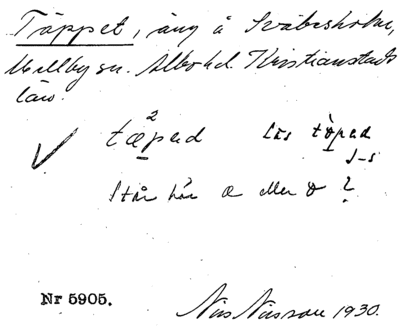 Täppet, äng å Svabesholm,
Mellby sn. Albo hd. Kristianstads
län.
tæ²ped läs tòped
J-s
Står här æ eller ø ?
Nr 5905.
Nils Nilsson 1930.